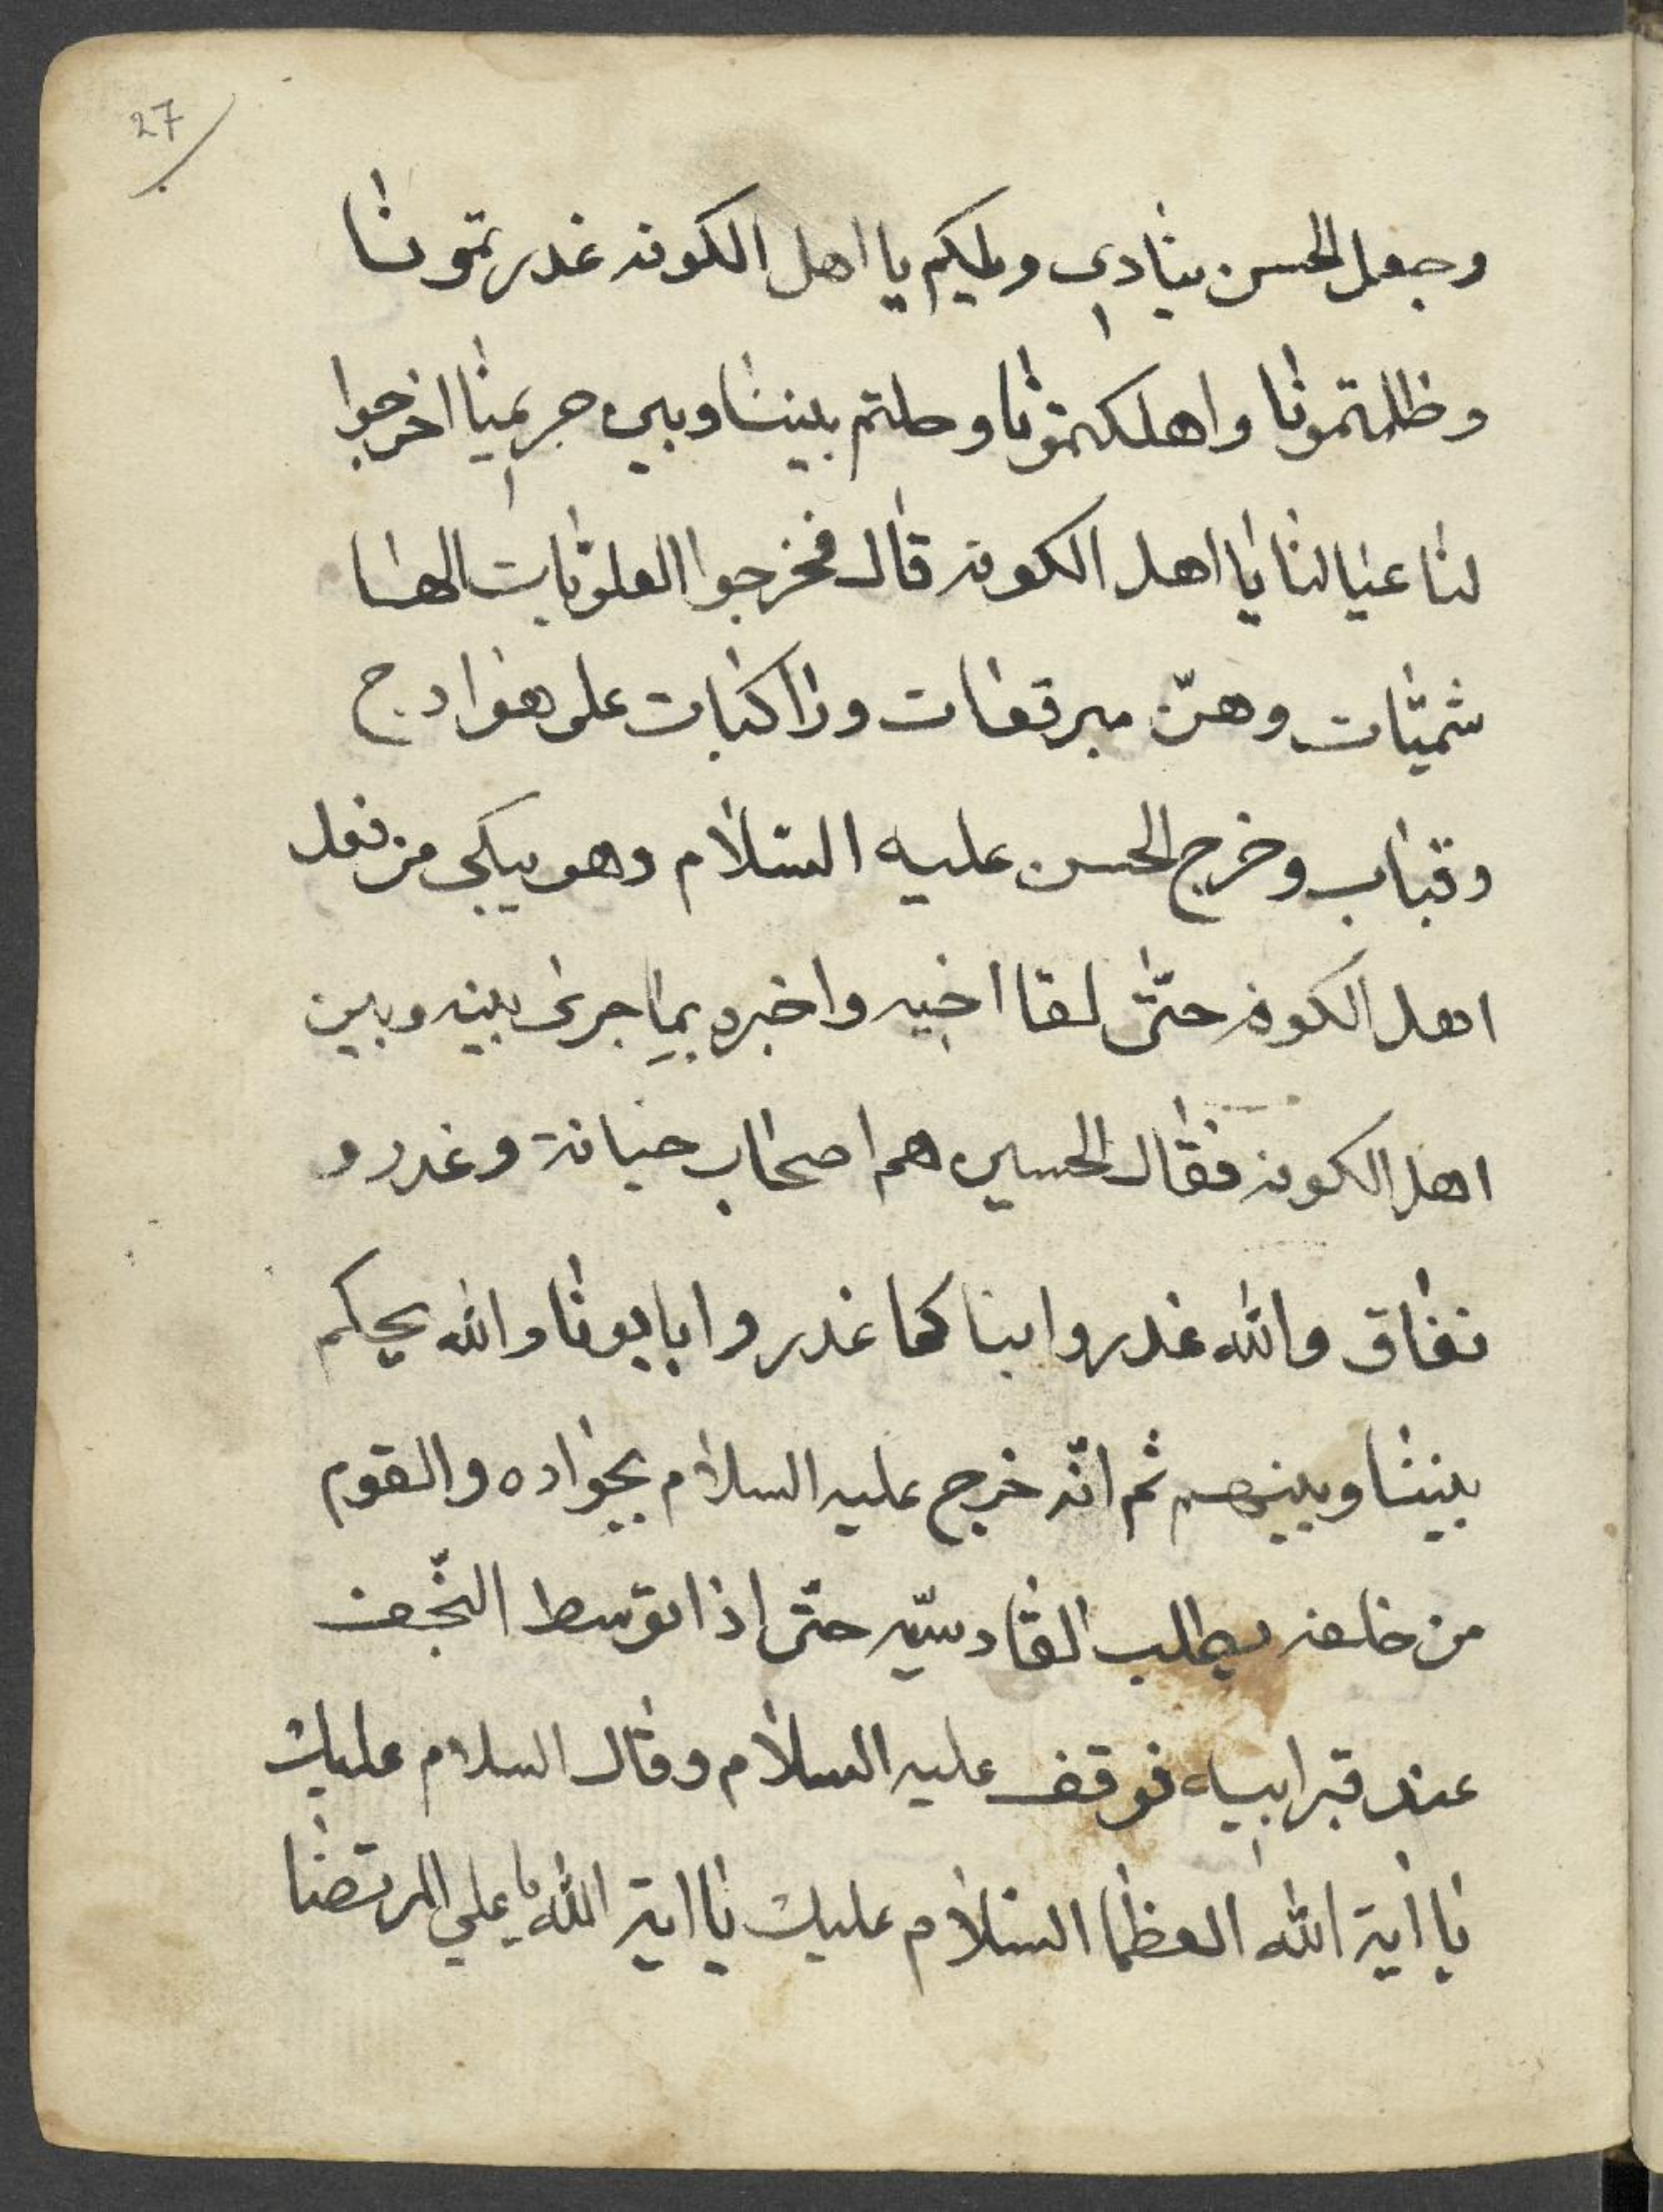 27
وجعل الحسن ينادي ويليكم يا اهل الكوفه غدرتمونا
وظلمتمونا واهلكتمونا وحلتم بيننا وبين حريمنا اخرجوا
لنا عيالنا يا اهل الكوفه قال فخرجوا العلويات الها
شميات وهنّ مبرقعات وراكبات على هوادج
وقباب وخرج الحسن عليه السلام وهو يبكي من فعل
اهل الكوفه حتّى لقا اخيه واخبره بما جرى بينه وبين
اهل الكوفه فقال الحسين هم اصحاب خيانة وغدر و
نفاق والله غدروا بنا كما غدروا بابونا والله يحكم
بيننا وبينهم ثم انّه خرج عليه السلام بجواده والقوم
من خلفه يطلب القادسيّه حتّى اذا توسط النّجف
عند قبر ابيه فوقف عليه السلام وقال السلام عليك
يا اية الله العظما السلام عليك يا اية الله يا علي المرتضا